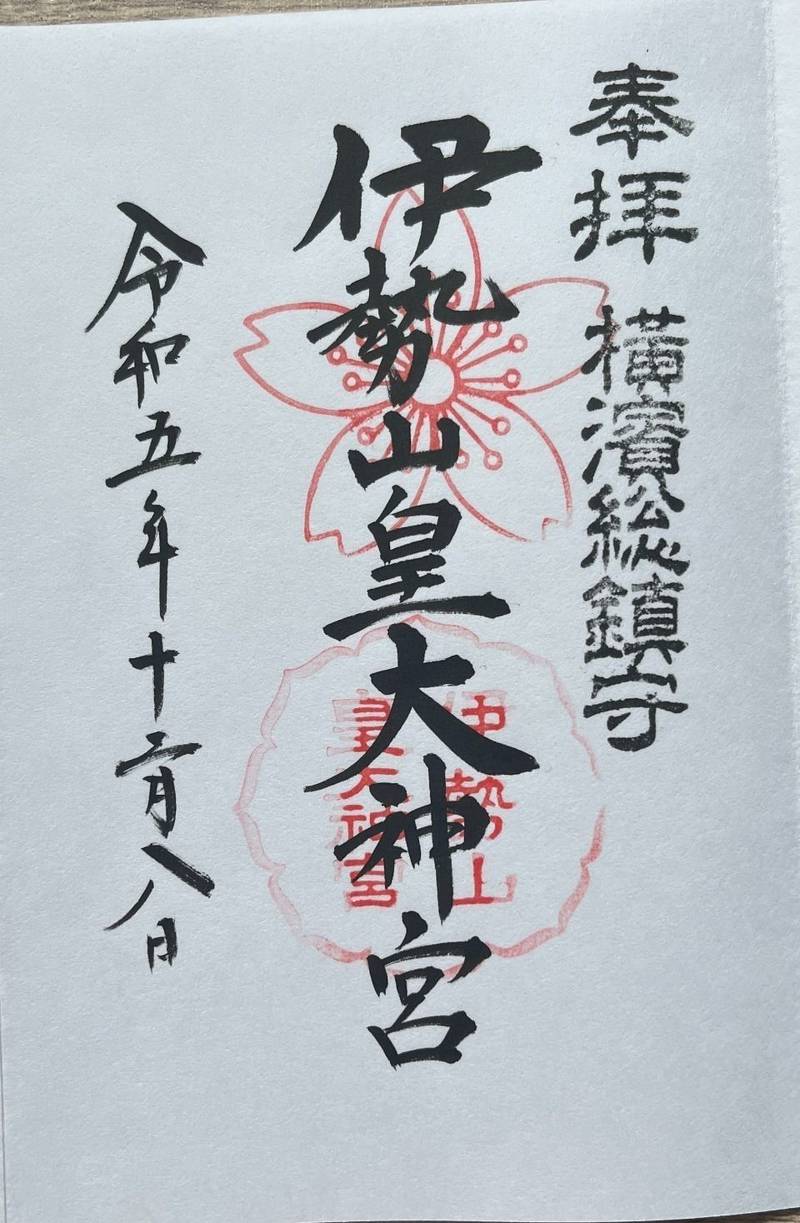 奉拝
横濱総鎮守
伊勢山皇大神宮
伊勢山
皇大神宮
令和五年十二月八日